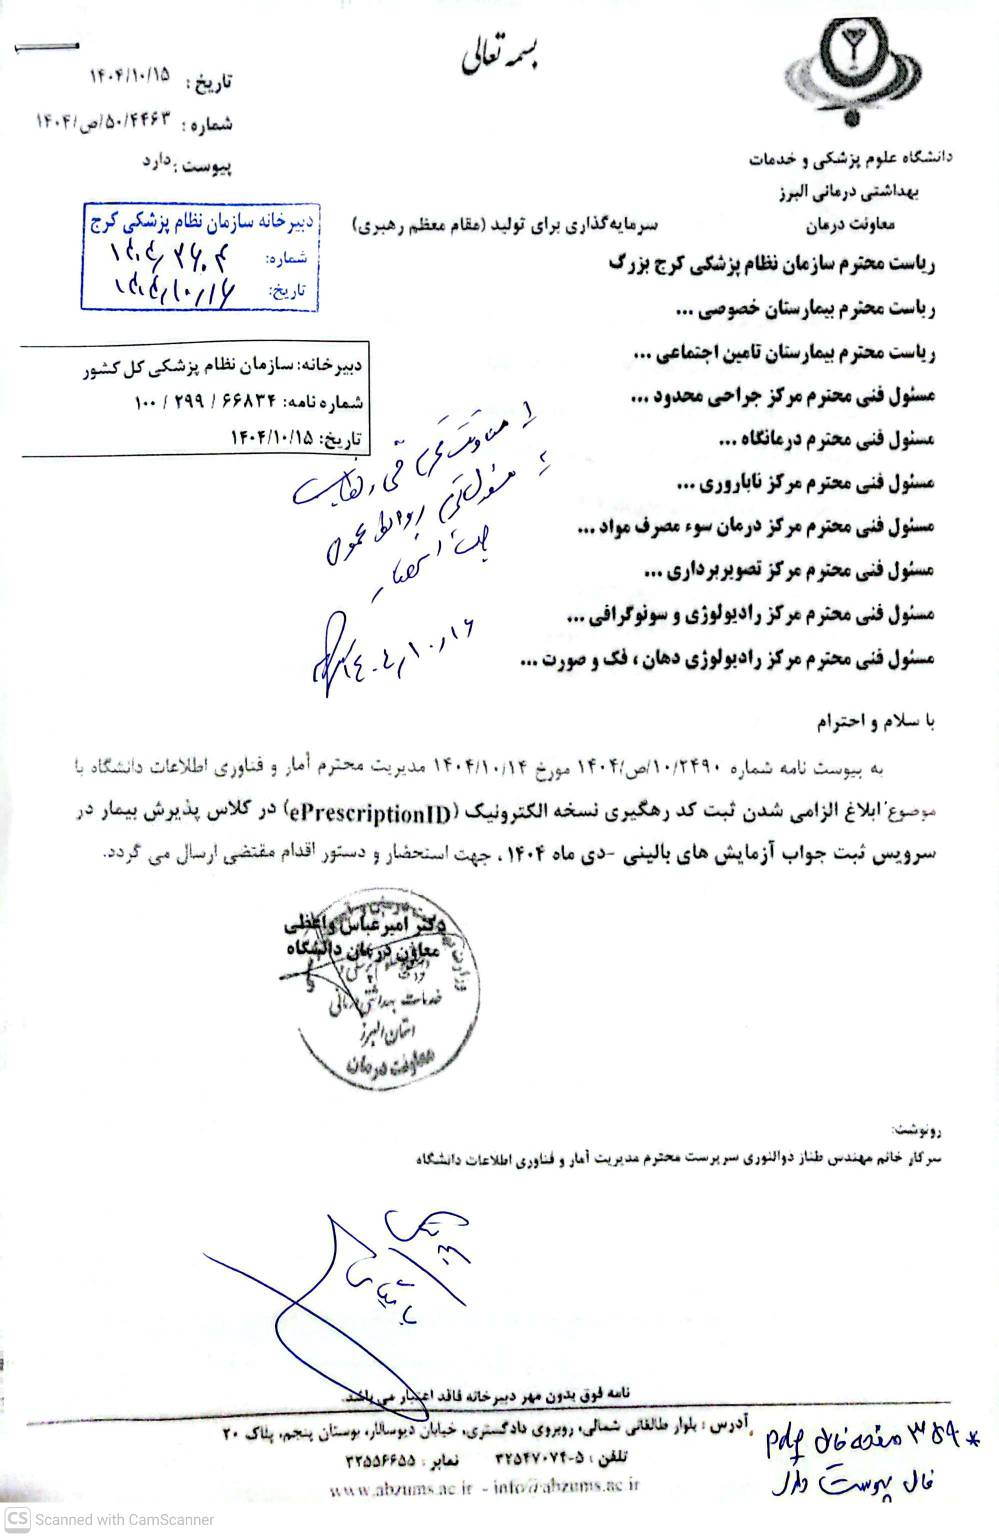 بسمه تعالی
تاریخ : ۱۴۰۴/۱۰/۱۵
شماره : ۱۴۰۴/ص/۵۰/۴۴۶۳
پیوست : دارد
دانشگاه علوم پزشکی و خدمات
بهداشتی درمانی البرز
معاونت درمان
سرمایه‌گذاری برای تولید (مقام معظم رهبری)
دبیرخانه سازمان نظام پزشکی کرج
شماره: ۱۴۰۴/۲۶۰۴
تاریخ: ۱۴۰۴/۱۰/۱۶
ریاست محترم سازمان نظام پزشکی کرج بزرگ
ریاست محترم بیمارستان خصوصی ...
ریاست محترم بیمارستان تامین اجتماعی ...
مسئول فنی محترم مرکز جراحی محدود ...
مسئول فنی محترم درمانگاه ...
مسئول فنی محترم مرکز ناباروری ...
مسئول فنی محترم مرکز درمان سوء مصرف مواد ...
مسئول فنی محترم مرکز تصویربرداری ...
مسئول فنی محترم مرکز رادیولوژی و سونوگرافی ...
مسئول فنی محترم مرکز رادیولوژی دهان ، فک و صورت ...
دبیرخانه: سازمان نظام پزشکی کل کشور
شماره نامه: ۱۰۰ / ۲۹۹ / ۶۶۸۳۴
تاریخ: ۱۴۰۴/۱۰/۱۵
مسئول محترم روابط عمومی
جهت استحضار
۱۴۰۴/۱۰/۱۶
با سلام و احترام
به پیوست نامه شماره ۱۴۰۴/ص/۱۰/۲۴۹۰ مورخ ۱۴۰۴/۱۰/۱۴ مدیریت محترم آمار و فناوری اطلاعات دانشگاه با
موضوع ابلاغ الزامی شدن ثبت کد رهگیری نسخه الکترونیک (ePrescriptionID) در کلاس پذیرش بیمار در
سرویس ثبت جواب آزمایش های بالینی -دی ماه ۱۴۰۴ ، جهت استحضار و دستور اقدام مقتضی ارسال می گردد.
دکتر امیرعباس واعظی
معاون درمان دانشگاه
خدمات بهداشتی درمانی
استان البرز
معاونت درمان
رونوشت:
سرکار خانم مهندس طناز ذوالنوری سرپرست محترم مدیریت آمار و فناوری اطلاعات دانشگاه
نامه فوق بدون مهر دبیرخانه فاقد اعتبار می باشد.
آدرس : بلوار طالقانی شمالی، روبروی دادگستری، خیابان دیوسالار، بوستان پنجم، پلاک ۲۰
تلفن : ۵-۳۲۵۴۷۰۷۴ نمابر : ۳۲۵۵۶۶۵۵
www.abzums.ac.ir - info@abzums.ac.ir
* ۳۵۹ صفحه فایل pdf
فایل پیوست دارد
CS Scanned with CamScanner